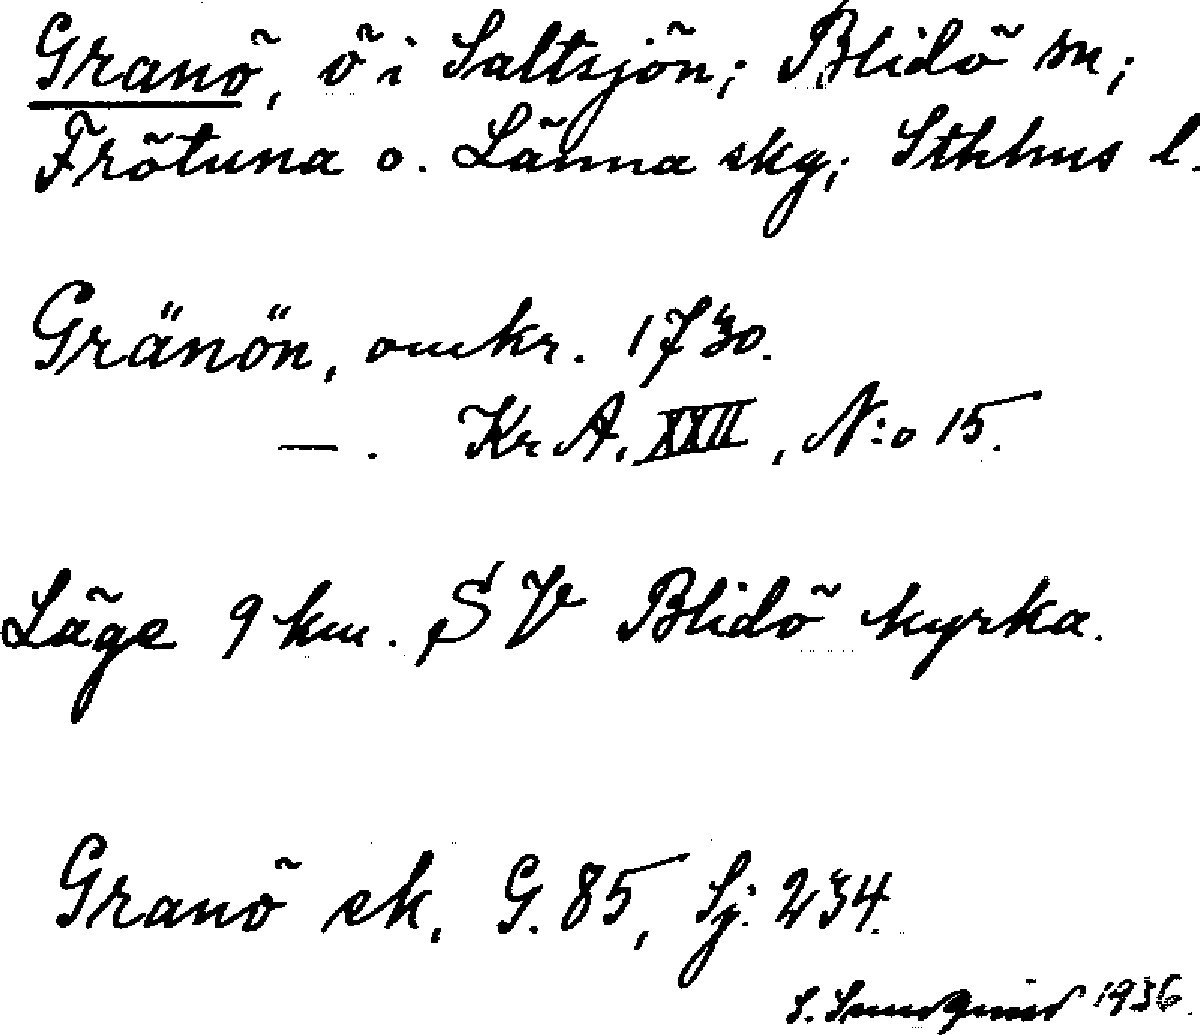 Granö, ö i Saltsjön; Blidö sn;
Frötuna o. Länna skg; Sthlms l.
Gränön, omkr. 1730.
—. Kr A. XXII, N:o 15.
Läge 9 km. SV Blidö kyrka.
Granö ek. G. 85, Sj: 234.
S. 1936.